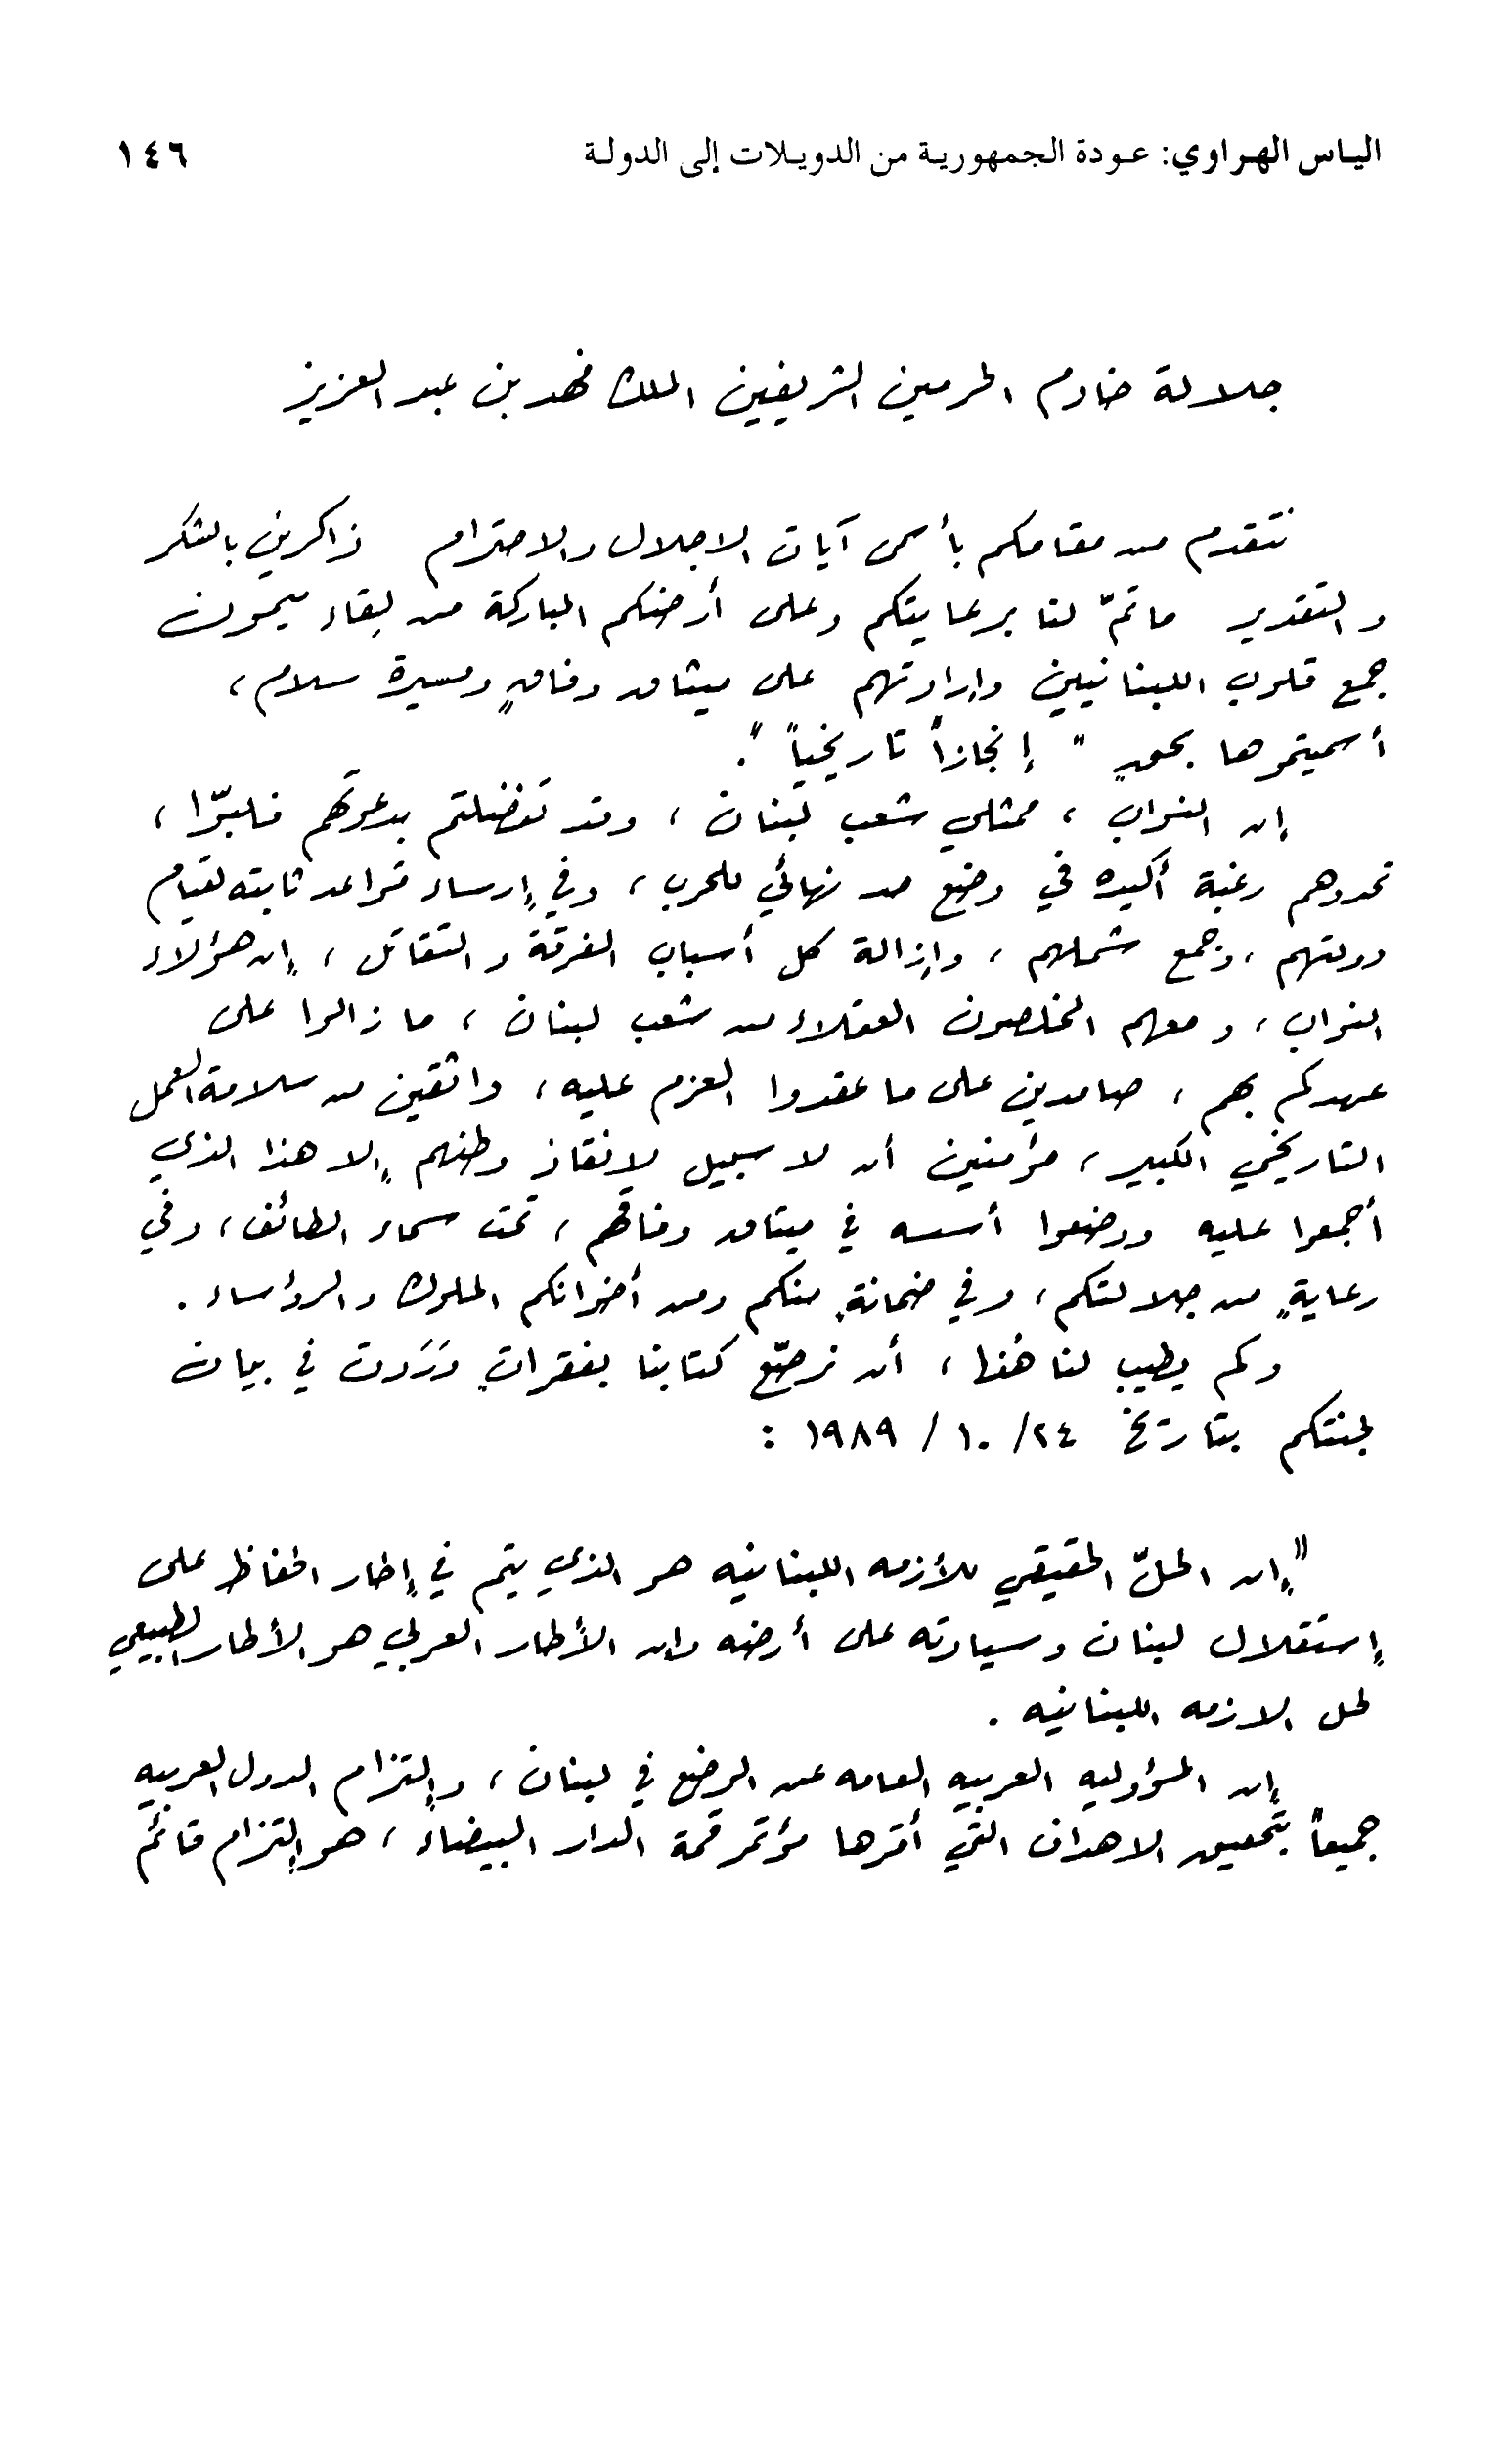 الياس الهراوي: عودة الجمهورية من الدويلات إلى الدولة ١٤٦
جلالة خادم الحرمين الشريفين الملك فهد بن عبد العزيز
نتقدم من مقامكم بأسمى آيات الاجلال والاحترام ذاكرين بالشكر
والتقدير ما تمّ لنا برعايتكم وعلى أرضكم المباركة من لقاء ميمون
جمع قلوب اللبنانيين وإرادتهم على ميثاق وفاقٍ ومسيرة سلام،
أسميتموها بحقٍ " إنجازاً تاريخياً ".
إن النواب، ممثلي شعب لبنان، وقد تفضلتم بدعوتهم فلبّوا،
تحدوهم رغبة أكيده في وضع حد نهائي للحرب، وفي إرساء قواعد ثابته لقيام
دولتهم، وجمع شملهم، وإزالة كل أسباب الفرقة والتقاتل، إن هؤلاء
النواب، ومعهم المخلصون العقلاء من شعب لبنان، ما زالوا على
عهدكم بهم، صامدين على ما عقدوا العزم عليه، واثقين من سلامة العمل
التاريخي الكبير، مؤمنين أن لا سبيل لإنقاذ وطنهم إلا هذا الذي
أجمعوا عليه ووضعوا أسسه في ميثاق وفاقهم، تحت سماء الطائف، وفي
رعايةٍ من جلالتكم، وفي ضمانةٍ منكم ومن أخوانكم الملوك والرؤساء.
وكم يطيب لنا هُنا، أن نرصّع كتابنا بفقراتٍ وَرَدت في بيان
لجنتكم بتاريخ ٢٤/ ١٠/ ١٩٨٩ :
"إن الحلّ الحقيقي للأزمه اللبنانيه هو الذي يتم في إطار الحفاظ على
إستقلال لبنان وسيادته على أرضه وإن الأطار العربي هو الأطار الطبيعي
لحل الازمه اللبنانيه .
إن المسؤوليه العربيه العامه عن الوضع في لبنان، وإلتزام الدول العربيه
جميعاً بتحقيق الاهداف التي أقرها مؤتمر قمة الدار البيضاء، هو إلتزام قائم